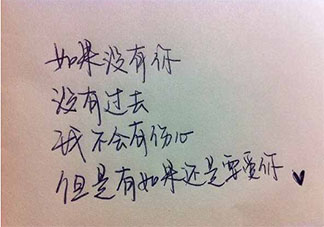 如果没有你
没有过去
我不会有伤心
但是有如果还是要爱你♥